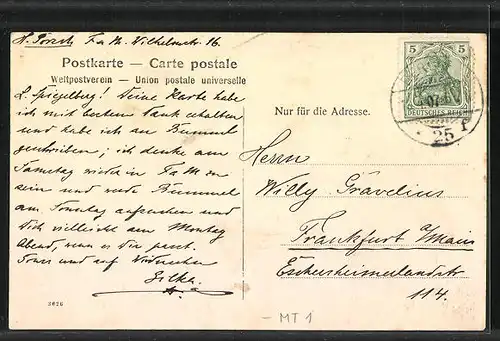 F a M. Wilhelmstr. 16.
Postkarte — Carte postale
Weltpostverein — Union postale universelle
L. Spiegelberg! Deine Karte habe
ich mit bestem Dank erhalten
und habe ich an Bummel
geschrieben; ich denke am
Samstag wieder in F a M zu
sein und werde Bummel
am Sonntag aufsuchen und
Dich vielleicht am Montag
Abend, wenn es Dir passt.
und auf Wiedersehen
3626
Nur für die Adresse.
5 5
DEUTSCHES REICH
25 f
Herrn
Willy Grävelius
Frankfurt a/Main
Eschersheimerlandstr
114.
- MT 1